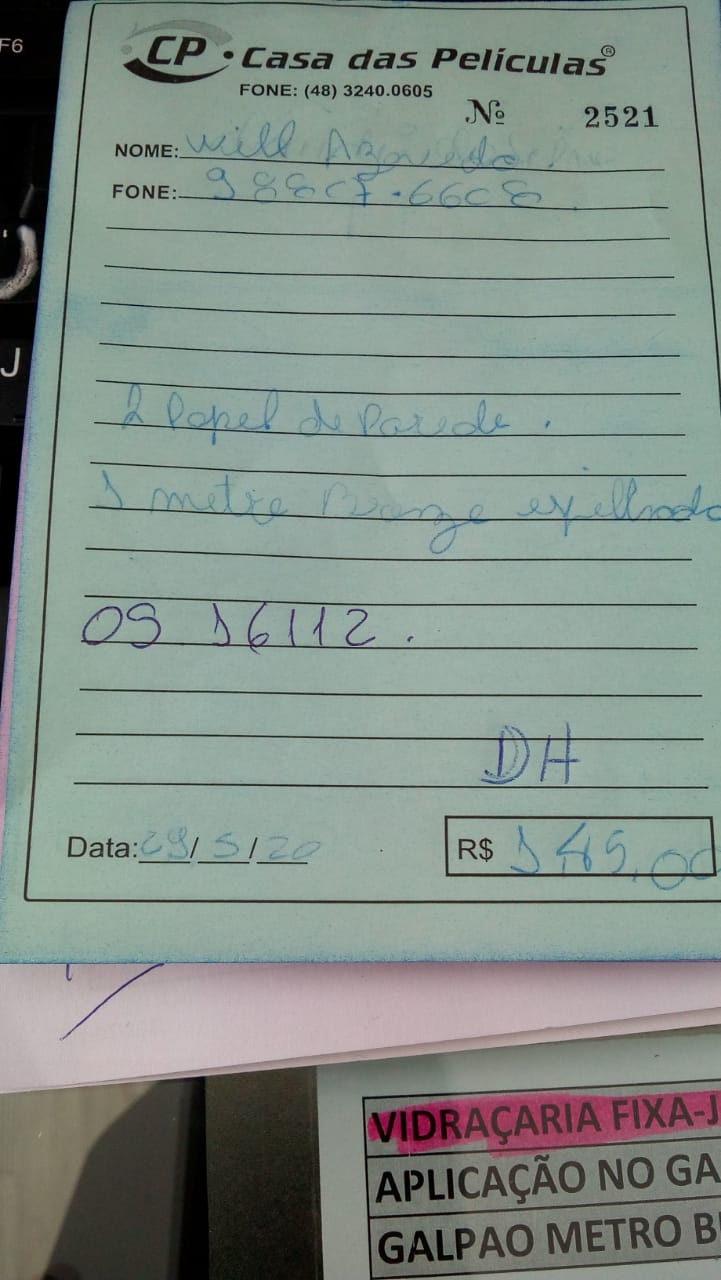 F6
J
CP • Casa das Películas®
FONE: (48) 3240.0605
Nº 2521
NOME: Will Azevedo
FONE: 98807.6608
2 Papel de Parede.
1 metro Bronze espelhado
OS 16112.
DH
Data: 29/5/20 R$ 145,00
VIDRAÇARIA FIXA-J
APLICAÇÃO NO GA
GALPAO METRO B